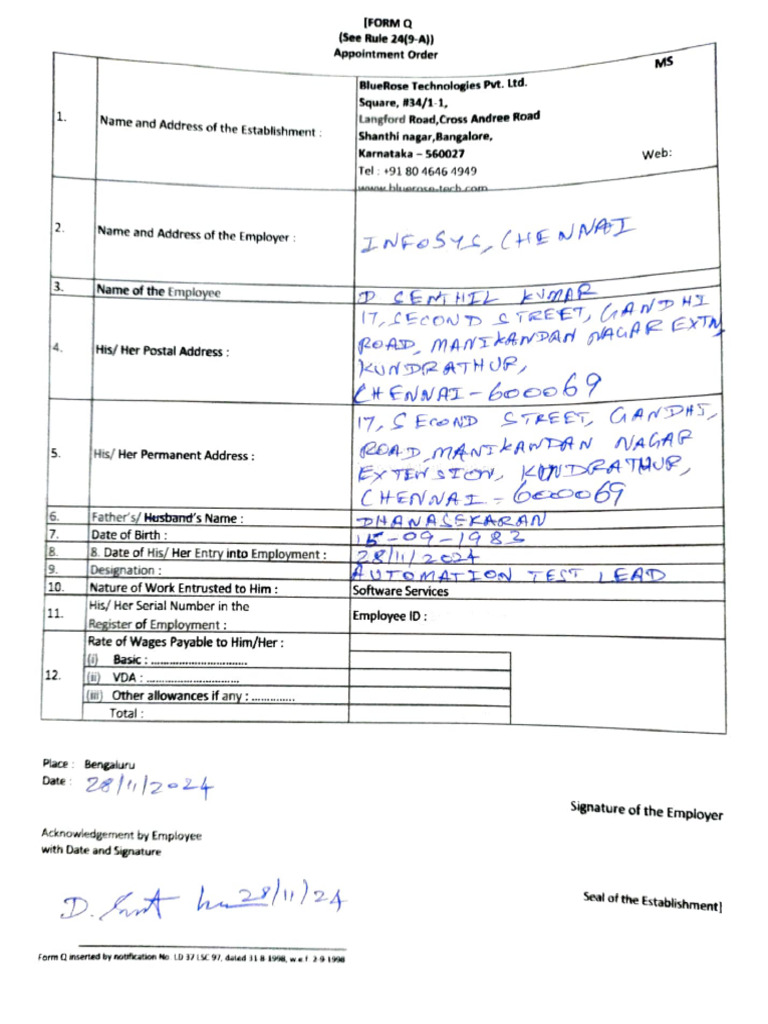 [FORM Q
(See Rule 24(9-A))
Appointment Order
MS
1. Name and Address of the Establishment :
BlueRose Technologies Pvt. Ltd.
Square, #34/1-1,
Langford Road,Cross Andree Road
Shanthi nagar,Bangalore,
Karnataka – 560027 Web:
Tel : +91 80 4646 4949
www.bluerose-tech.com
2. Name and Address of the Employer : INFOSYS, CHENNAI
3. Name of the Employee D SENTHIL KUMAR
4. His/ Her Postal Address :
17, SECOND STREET, GANDHI
ROAD, MANIKANDAN NAGAR EXTN,
KUNDRATHUR,
CHENNAI-600069
5. His/ Her Permanent Address :
17, SECOND STREET, GANDHI,
ROAD, MANIKANDAN NAGAR
EXTENSION, KUNDRATHUR,
CHENNAI - 600069
6. Father's/ Husband's Name : DHANASEKARAN
7. Date of Birth : 15-09-1983
8. 8. Date of His/ Her Entry into Employment : 28/11/2024
9. Designation : AUTOMATION TEST LEAD
10. Nature of Work Entrusted to Him : Software Services
11. His/ Her Serial Number in the
Register of Employment : Employee ID :
12. Rate of Wages Payable to Him/Her :
(i) Basic : ................................
(ii) VDA : ..............................
(iii) Other allowances if any : ..............
Total :
Place : Bengaluru
Date : 28/11/2024
Signature of the Employer
Acknowledgement by Employee
with Date and Signature
D. 28/11/24
Seal of the Establishment]
Form Q inserted by notification No. LD 37 LSC 97, dated 31 8 1998, w e f 2-9 1998